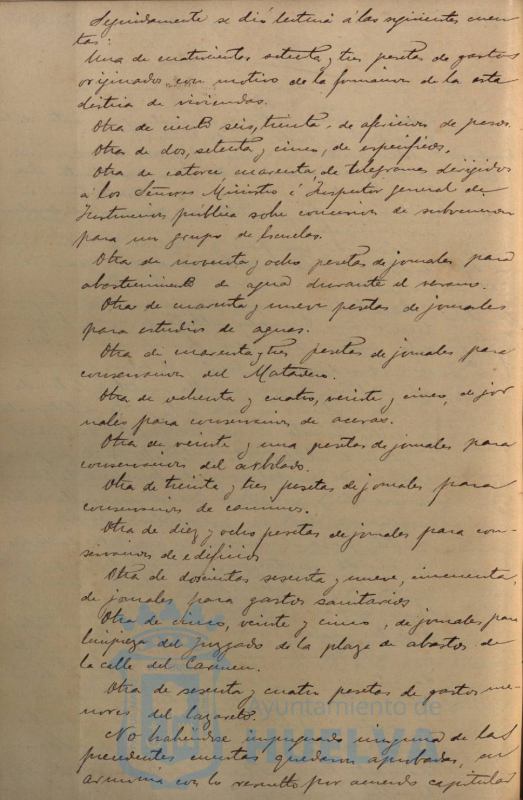 Seguidamente se dió lectura á las siguientes cuen
tas:
Una de cuatrocientas setenta y tres pesetas de gastos
originados con motivo de la formacion de la esta
distica de viviendas.
Otra de ciento seis, treinta, de aficion de pesos.
Otra de dos, setenta y cinco, de especificos.
Otra de catorce, cuarenta, de telegramas dirigidos
á los Señores Ministro é Inspector general de
Instruccion pública sobre concesion de subvencion
para un grupo de Escuelas.
Otra de noventa y ocho pesetas de jornales para
abastecimiento de agua durante el verano.
Otra de cuarenta y nueve pesetas de jornales
para estudios de aguas.
Otra de cuarenta y tres pesetas de jornales para
conservacion del Matadero.
Otra de ochenta y cuatro, veinte y cinco, de jor
nales para conservacion de aceras.
Otra de veinte y una pesetas de jornales para
conservacion del arbolado.
Otra de treinta y tres pesetas de jornales para
conservacion de caminos.
Otra de diez y ocho pesetas de jornales para con-
servacion de edificios
Otra de doscientas sesenta y nueve, cincuenta,
de jornales para gastos sanitarios
Otra de cinco, veinte y cinco, de jornales para
limpieza del Juzgado de la plaza de abastos de
la calle del Carmen.
Otra de sesenta y cuatro pesetas de gastos me-
nores del lazareto.
No habiéndose impugnado ninguna de las
precedentes cuentas quedaron aprobadas, en
armonia con lo resuelto por acuerdo capitular
Ayuntamiento de
HUELVA